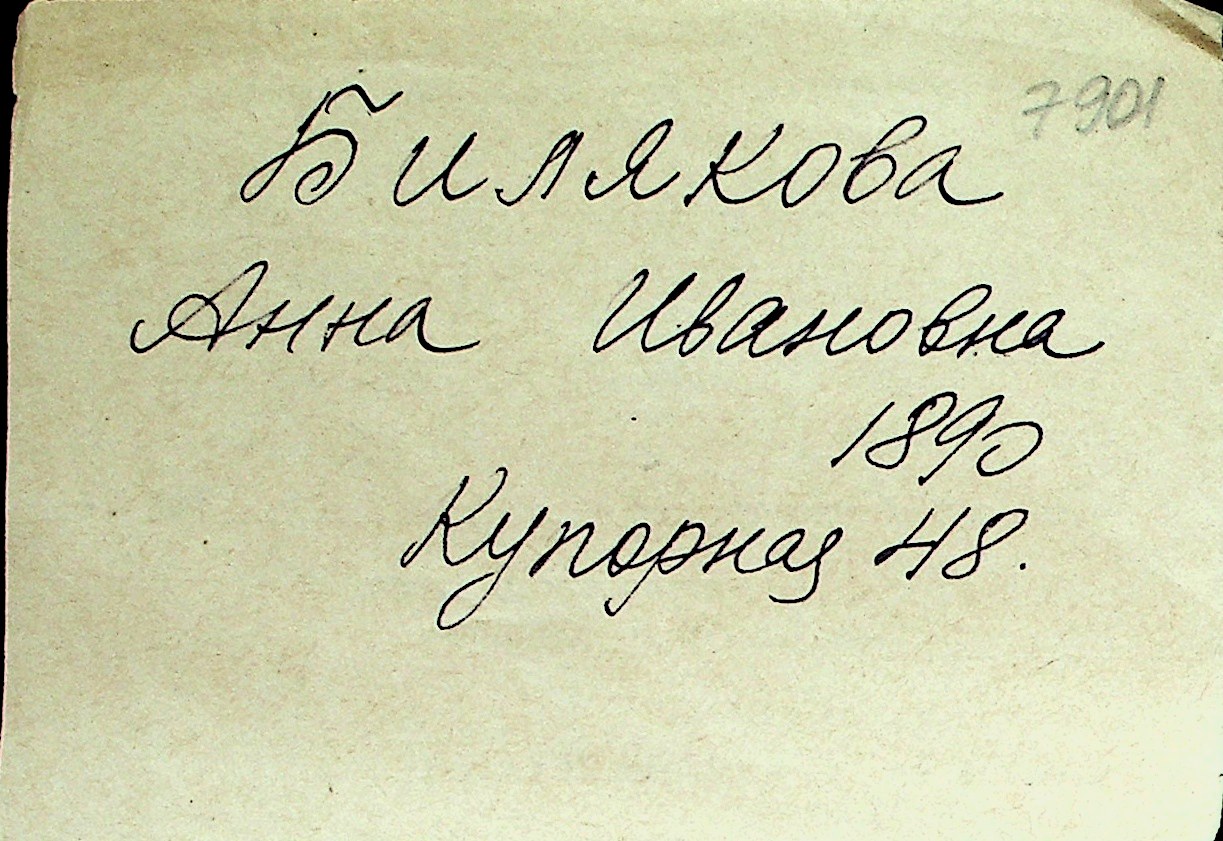 7901
Билякова
Анна Ивановна
1890
Купорная 48.